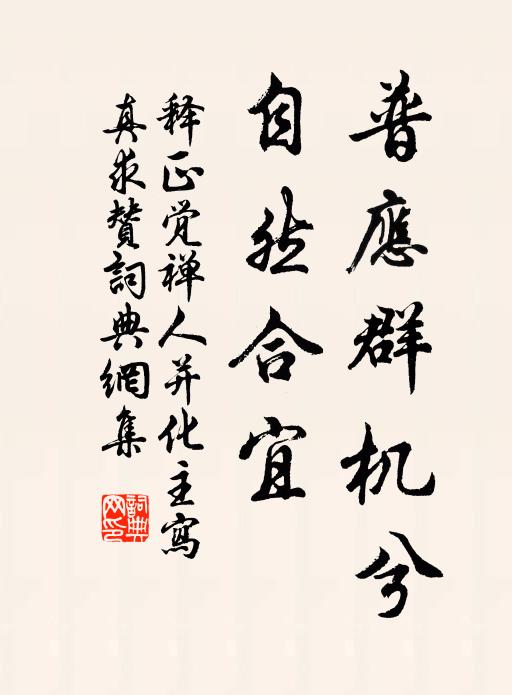 普應群机兮
自然合宜
释正觉禅人并化主寫
真求赞詞典網集
詞典網印